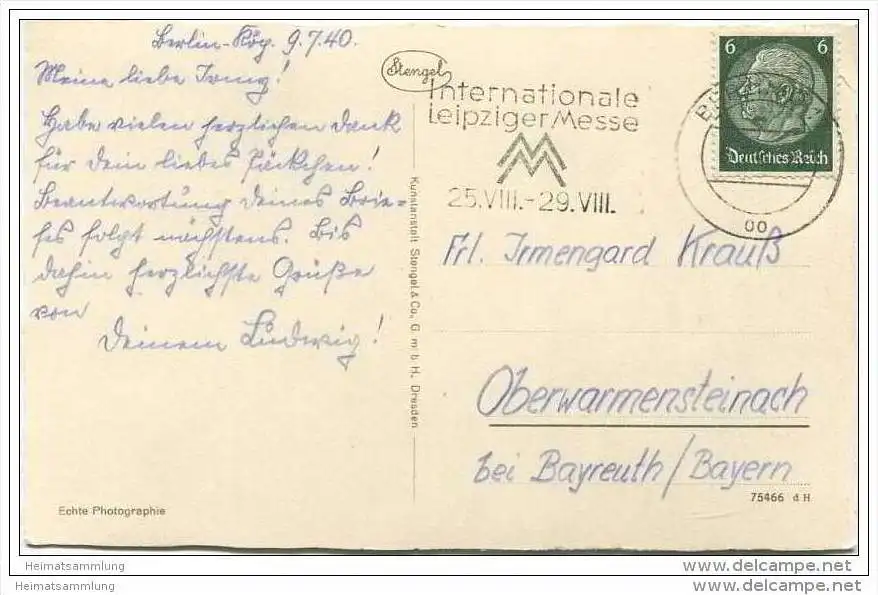 Berlin-Köp. 9.7.40.
Meine liebe Irmg!
Habe vielen herzlichen Dank
für Dein liebes Päckchen!
Beantwortung Deines Brie=
fes folgt nächstens. Bis
dahin herzlichste Grüße
von
Deinem Ludwig!
Echte Photographie
Stengel
Kunstanstalt Stengel & Co., G. m. b. H., Dresden
Internationale
Leipziger Messe
25.VIII.-29.VIII.
6 6
Deutsches Reich
Frl. Irmengard Krauß
Oberwarmensteinach
bei Bayreuth/Bayern
75466 d H
Heimatsammlung
www.delcampe.net
Heimatsammlung
www.delcampe.net